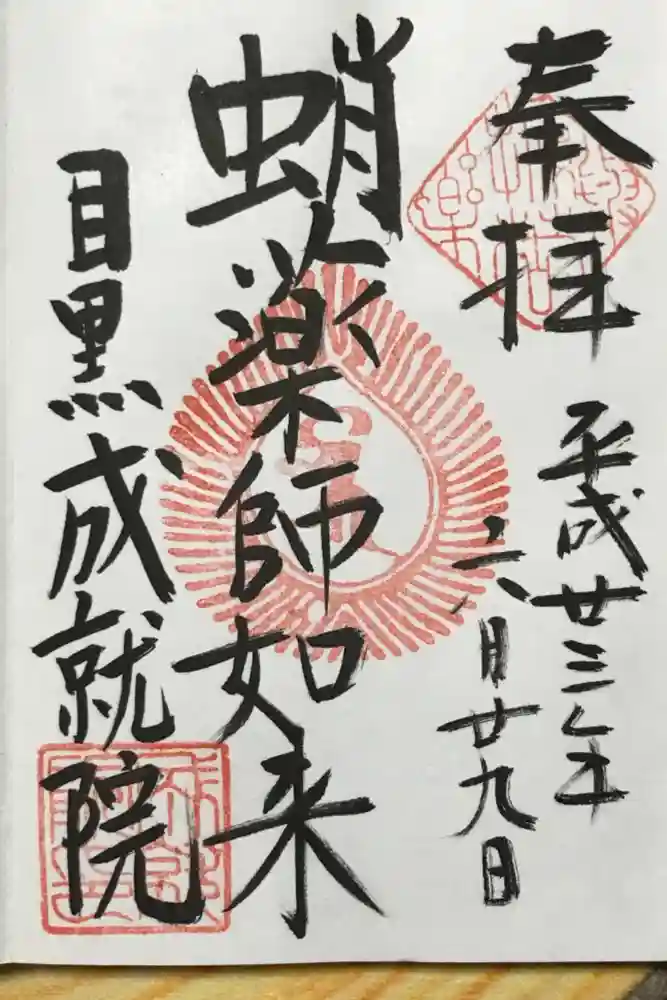 奉拝
平成廿三年
六月廿九日
蛸薬師如来
目黒成就院